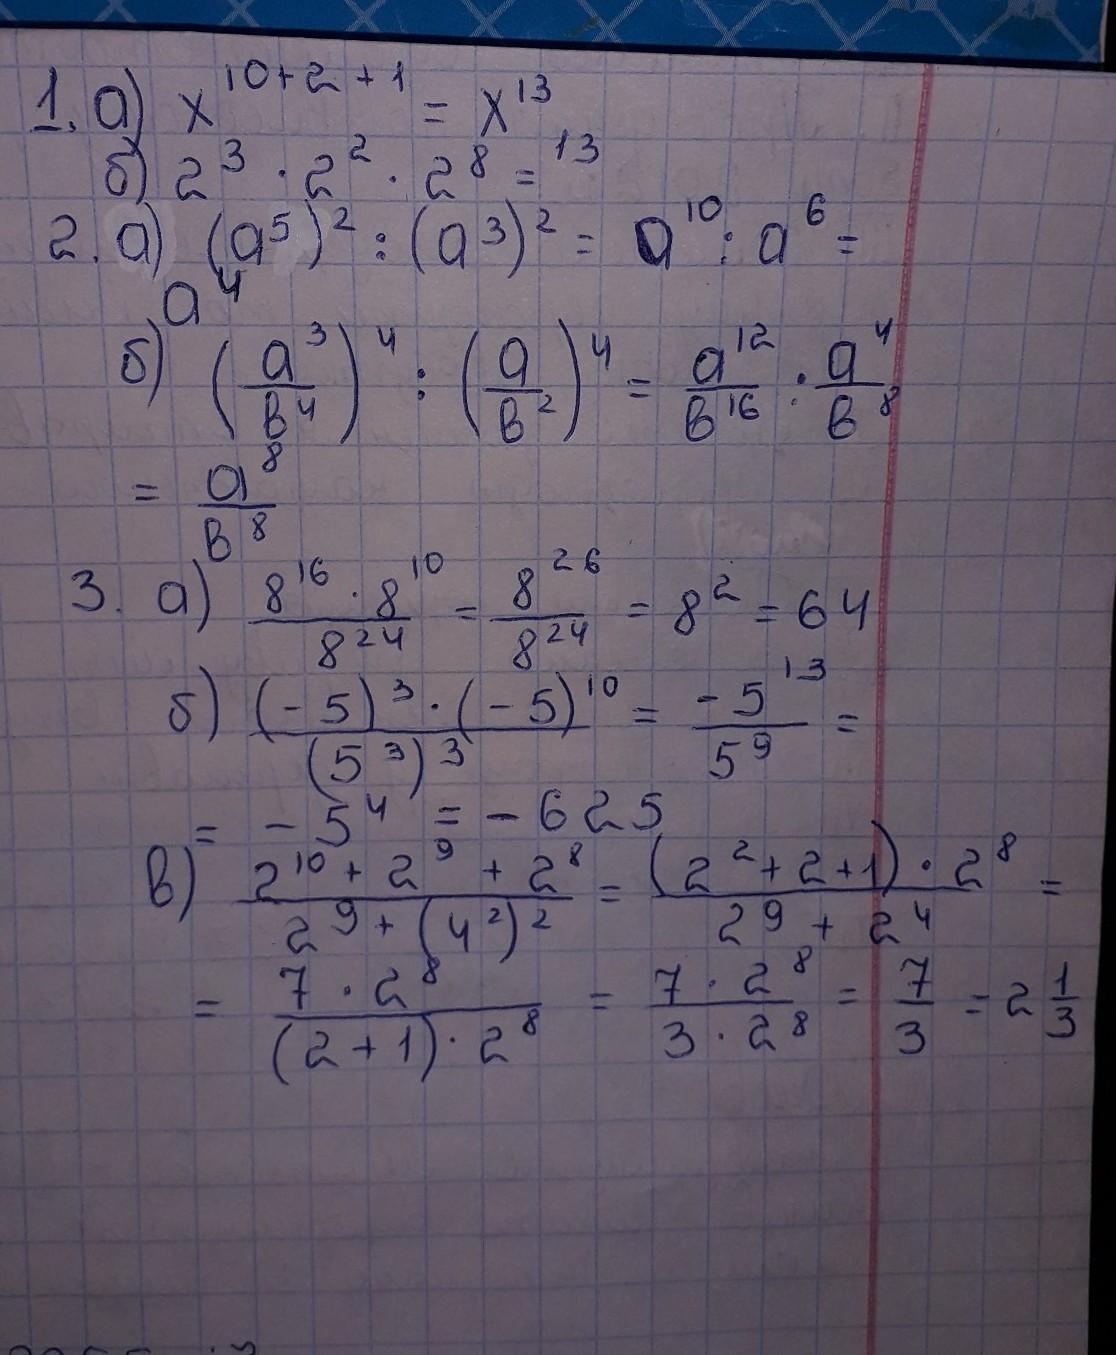 1. а) x^{10+2+1} = x^{13}
б) 2^3 · 2^2 · 2^8 = ^{13}
2. а) (a^5)^2 : (a^3)^2 = a^{10} : a^6 =
a^4
б) (a^3/в^4)^4 : (a/в^2)^4 = a^{12}/в^{16} : a^4/в^8
= a^8/в^8
3. а) 8^{16} · 8^{10}/8^{24} = 8^{26}/8^{24} = 8^2 = 64
б) (-5)^3 · (-5)^{10}/(5^3)^3 = -5^{13}/5^9 =
= -5^4 = -625
в) 2^{10} + 2^9 + 2^8/2^9 + (4^2)^2 = (2^2 + 2 + 1) · 2^8/2^9 + 2^4 =
= 7 · 2^8/(2 + 1) · 2^8 = 7 · 2^8/3 · 2^8 = 7/3 = 2 1/3